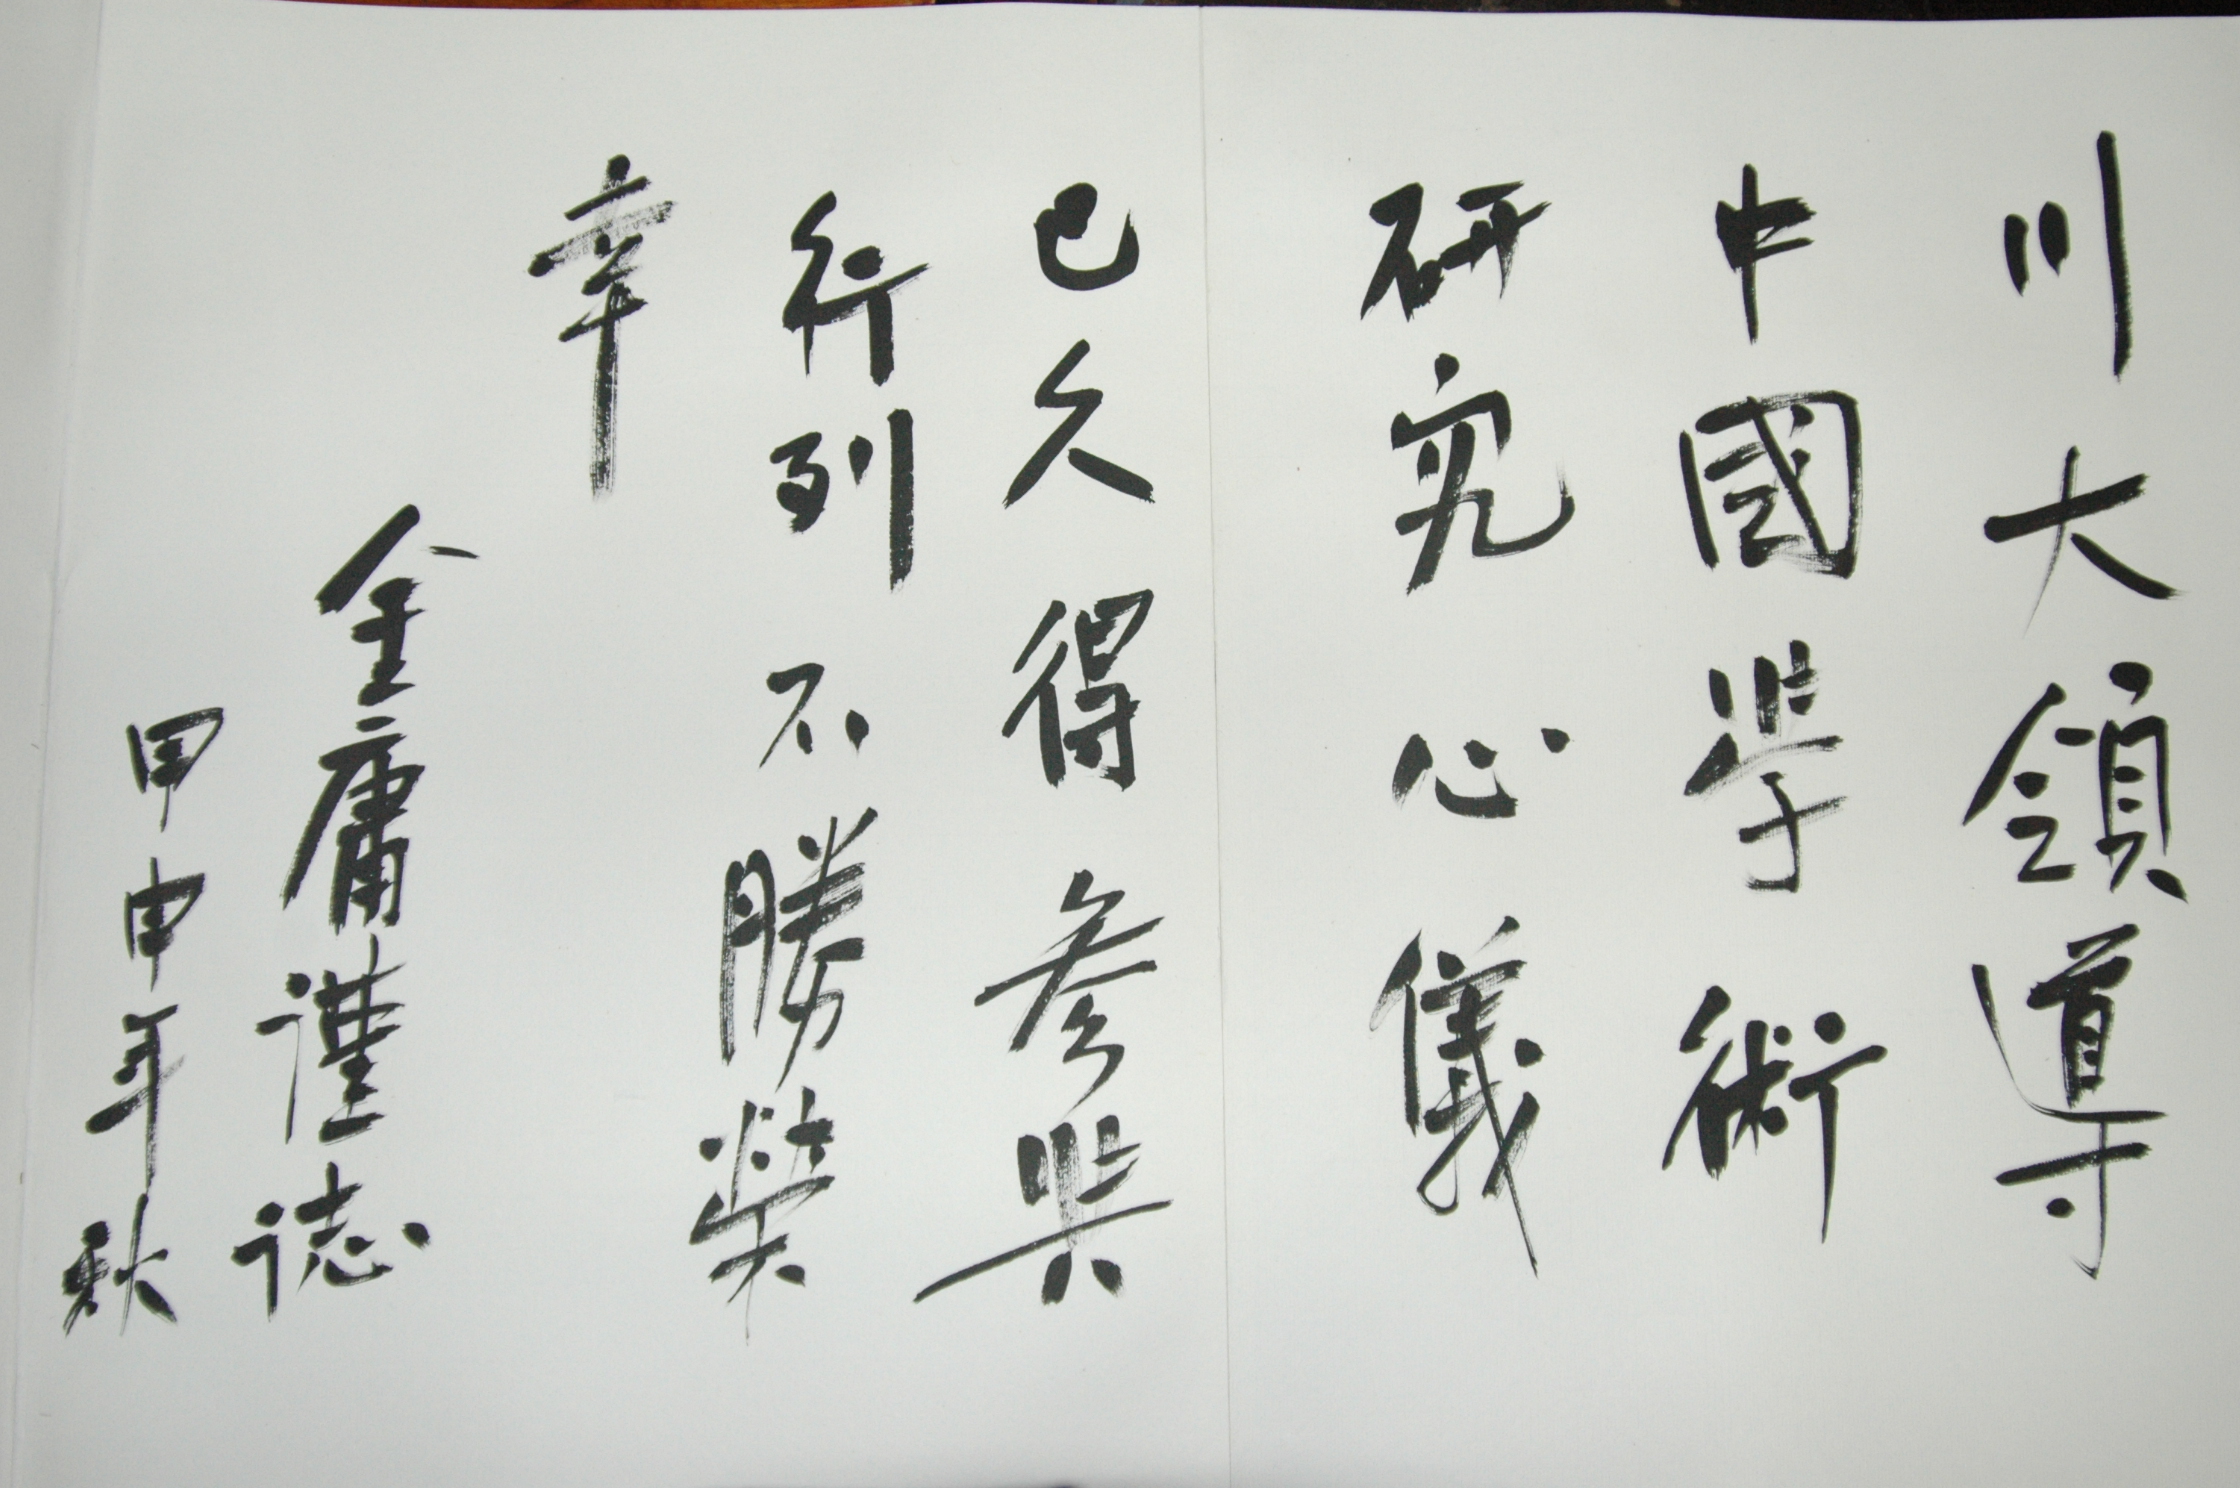 川大領導
中國學術
研究心儀
已久得參與
行列不勝榮
幸
金庸謹誌
甲申年秋